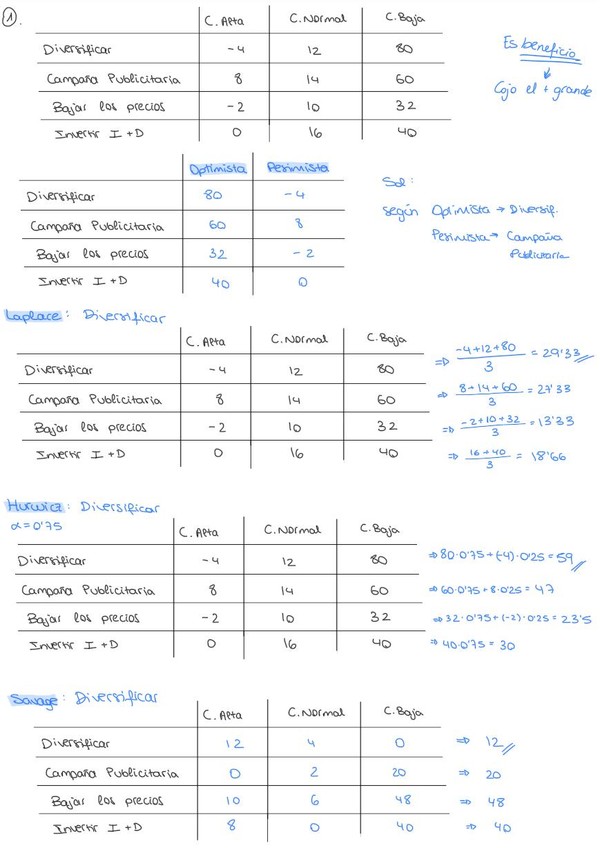 1.
C. Alta C. Normal C. Baja
Diversificar -4 12 80
Campaña Publicitaria 8 14 60
Bajar los precios -2 10 32
Invertir I+D 0 16 40
Es beneficio
↓
Cojo el + grande
Optimista Pesimista
Diversificar 80 -4
Campaña Publicitaria 60 8
Bajar los precios 32 -2
Invertir I+D 40 0
Sol:
según Optimista → Diversif.
Pesimista → Campaña
Publicitaria
Laplace: Diversificar
C. Alta C. Normal C. Baja
Diversificar -4 12 80 ⇒ -4+12+80 / 3 = 29'33
Campaña Publicitaria 8 14 60 ⇒ 8+14+60 / 3 = 27'33
Bajar los precios -2 10 32 ⇒ -2+10+32 / 3 = 13'33
Invertir I+D 0 16 40 ⇒ 16+40 / 3 = 18'66
Hurwicz: Diversificar
α=0'75
C. Alta C. Normal C. Baja
Diversificar -4 12 80 ⇒ 80·0'75+(-4)·0'25=59
Campaña Publicitaria 8 14 60 ⇒ 60·0'75+8·0'25=47
Bajar los precios -2 10 32 ⇒ 32·0'75+(-2)·0'25=23'5
Invertir I+D 0 16 40 ⇒ 40·0'75=30
Savage: Diversificar
C. Alta C. Normal C. Baja
Diversificar 12 4 0 ⇒ 12
Campaña Publicitaria 0 2 20 ⇒ 20
Bajar los precios 10 6 48 ⇒ 48
Invertir I+D 8 0 40 ⇒ 40